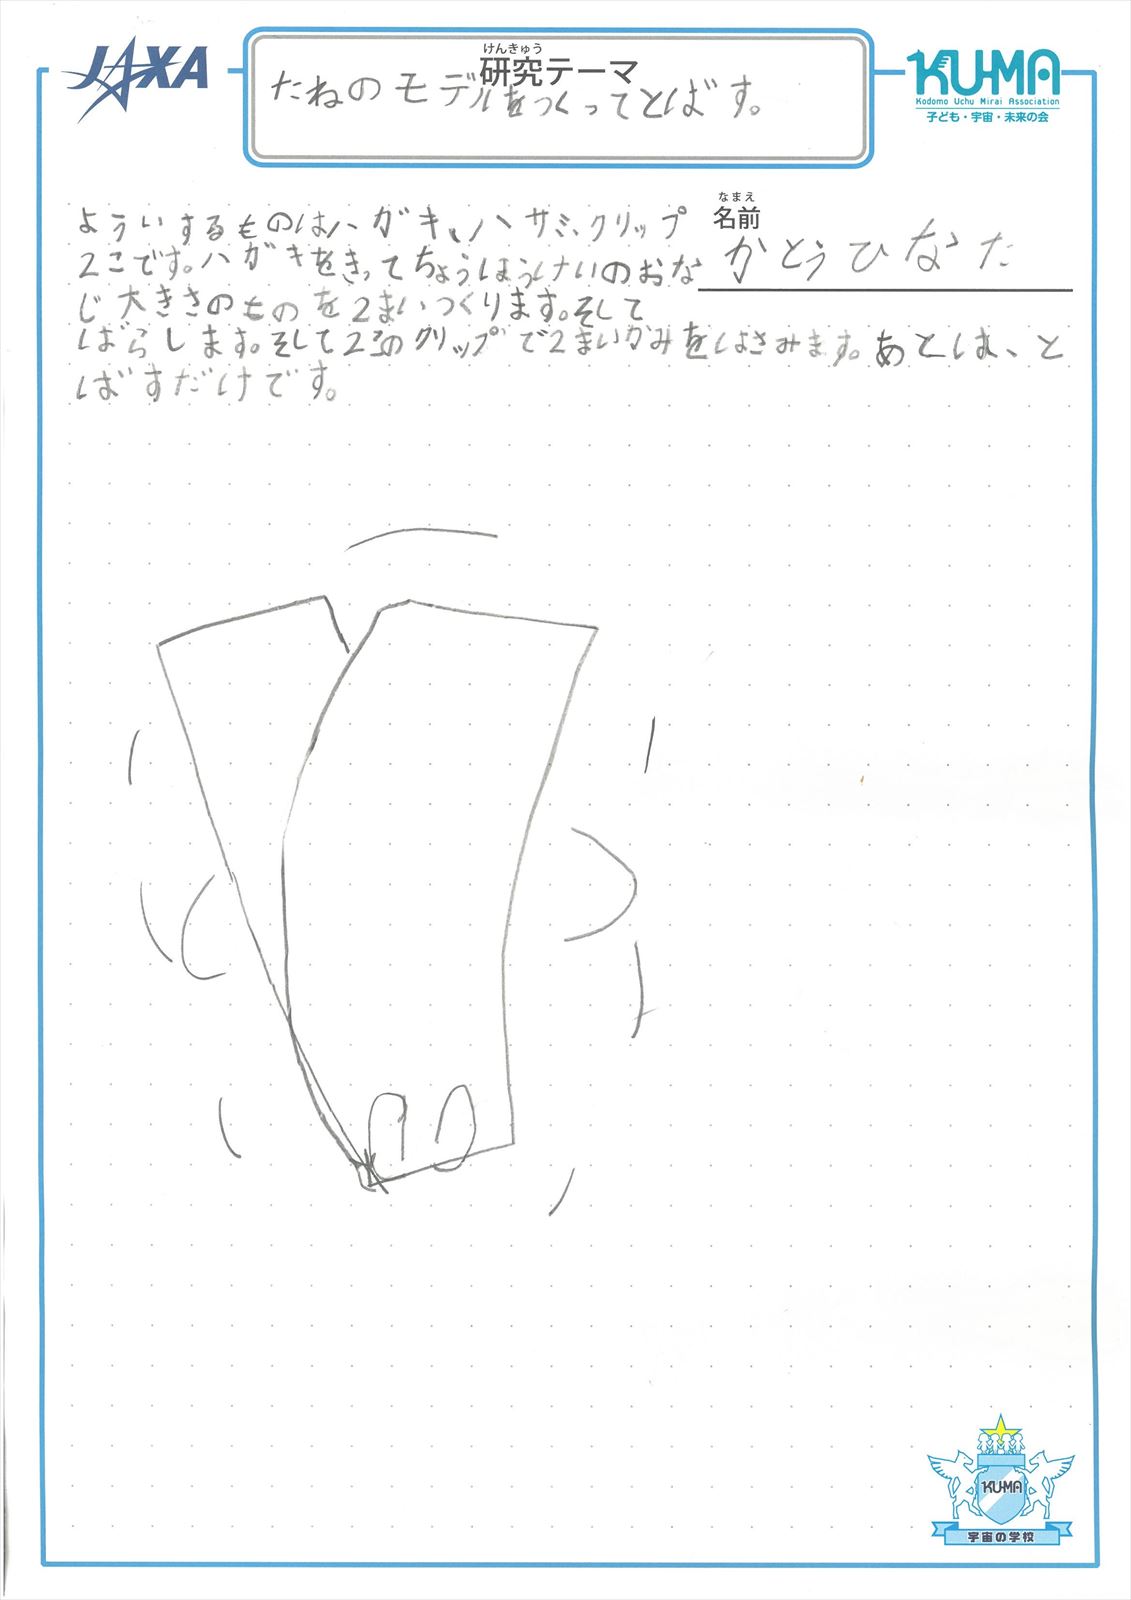 JAXA
けんきゅう
研究テーマ
たねのモデルをつくってとばす。
KU-MA
Kodomo Uchu Mirai Association
子ども・宇宙・未来の会
なまえ
名前
かとうひなた
よういするものはハガキ、ハサミ、クリップ
2こです。ハガキをきってちょうほうけいのおな
じ大きさのものを2まいつくります。そして
ばらします。そして2このクリップで2まいかみをはさみます。あとは、と
ばすだけです。
KU-MA
宇宙の学校